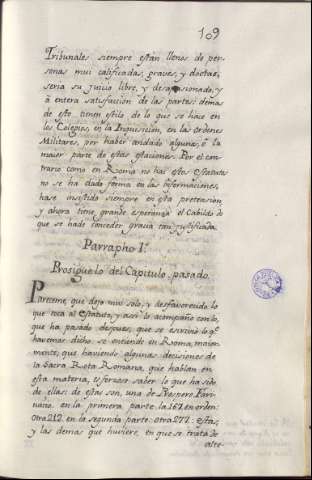 109
Tribunales siempre están llenos de per-
sonas mui calificadas, graves, y doctas,
seria su juicio libre, y desapasionado, y
á entera satisfacion de las partes: demas
de esto tienen estilo de lo que se hace en
los Colegios, en la Inquisicion, en las Ordenes
Militares, por haber andado alguna, ó la
maior parte de estas estaciones. Por el con-
trario como en Roma no hai estos Estatutos
no se ha dado forma en las informaciones,
hase insistido siempre en esta pretension
y ahora tiene grande esperanza el Cabildo de
que se hade conceder gracia tan justificada.
Parrapho 1º.
Prosiguelo del Capitulo pasado.
Pareceme, que dejo mui solo, y desfavorecido lo
que toca al Estatuto, y assi lo acompaño con lo,
que ha pasado despues, que se escrivió lo q.e
havemos dicho, se entiende en Roma, maior-
mente, que haviendo algunas decisiones de
la Sacra Rota Romana, que hablan en
esta materia, es forzoso saber lo que ha sido
de ellas: de estas son, una de Prospero Fari-
nacio, en la primera parte la 167. en orden:
otra 212. en la segunda parte: otra 277: estas,
y las demas que huviere, en que se trata de
alte-